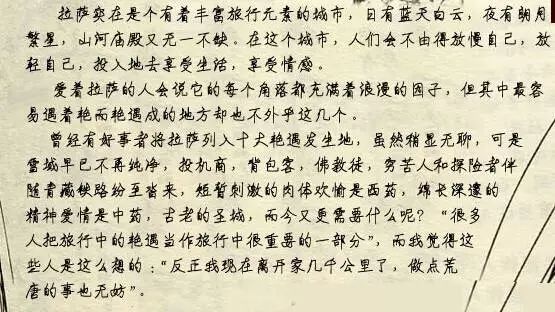 拉萨实在是个有着丰富旅行元素的城市，日有蓝天白云，夜有朗月
繁星，山河庙殿又无一不缺。在这个城市，人们会不由得放慢自己，放
轻自己，投入地去享受生活，享受情感。
爱着拉萨的人会说它的每个角落都充满着浪漫的因子，但其中最容
易遇着艳而艳遇成的地方却也不外乎这几个。
曾经有好事者将拉萨列入十大艳遇发生地，虽然稍显无聊，可是
雪城早已不再纯净，投机商，背包客，佛教徒，穷苦人和探险者伴
随青藏铁路纷至沓来，短暂刺激的肉体欢愉是西药，绵长深邃的
精神爱情是中药，古老的圣城，而今又更需要什么呢？“很多
人把旅行中的艳遇当作旅行中很重要的一部分”，而我觉得这
些人是这么想的：“反正我现在离开家几千公里了，做点荒
唐的事也无妨”。